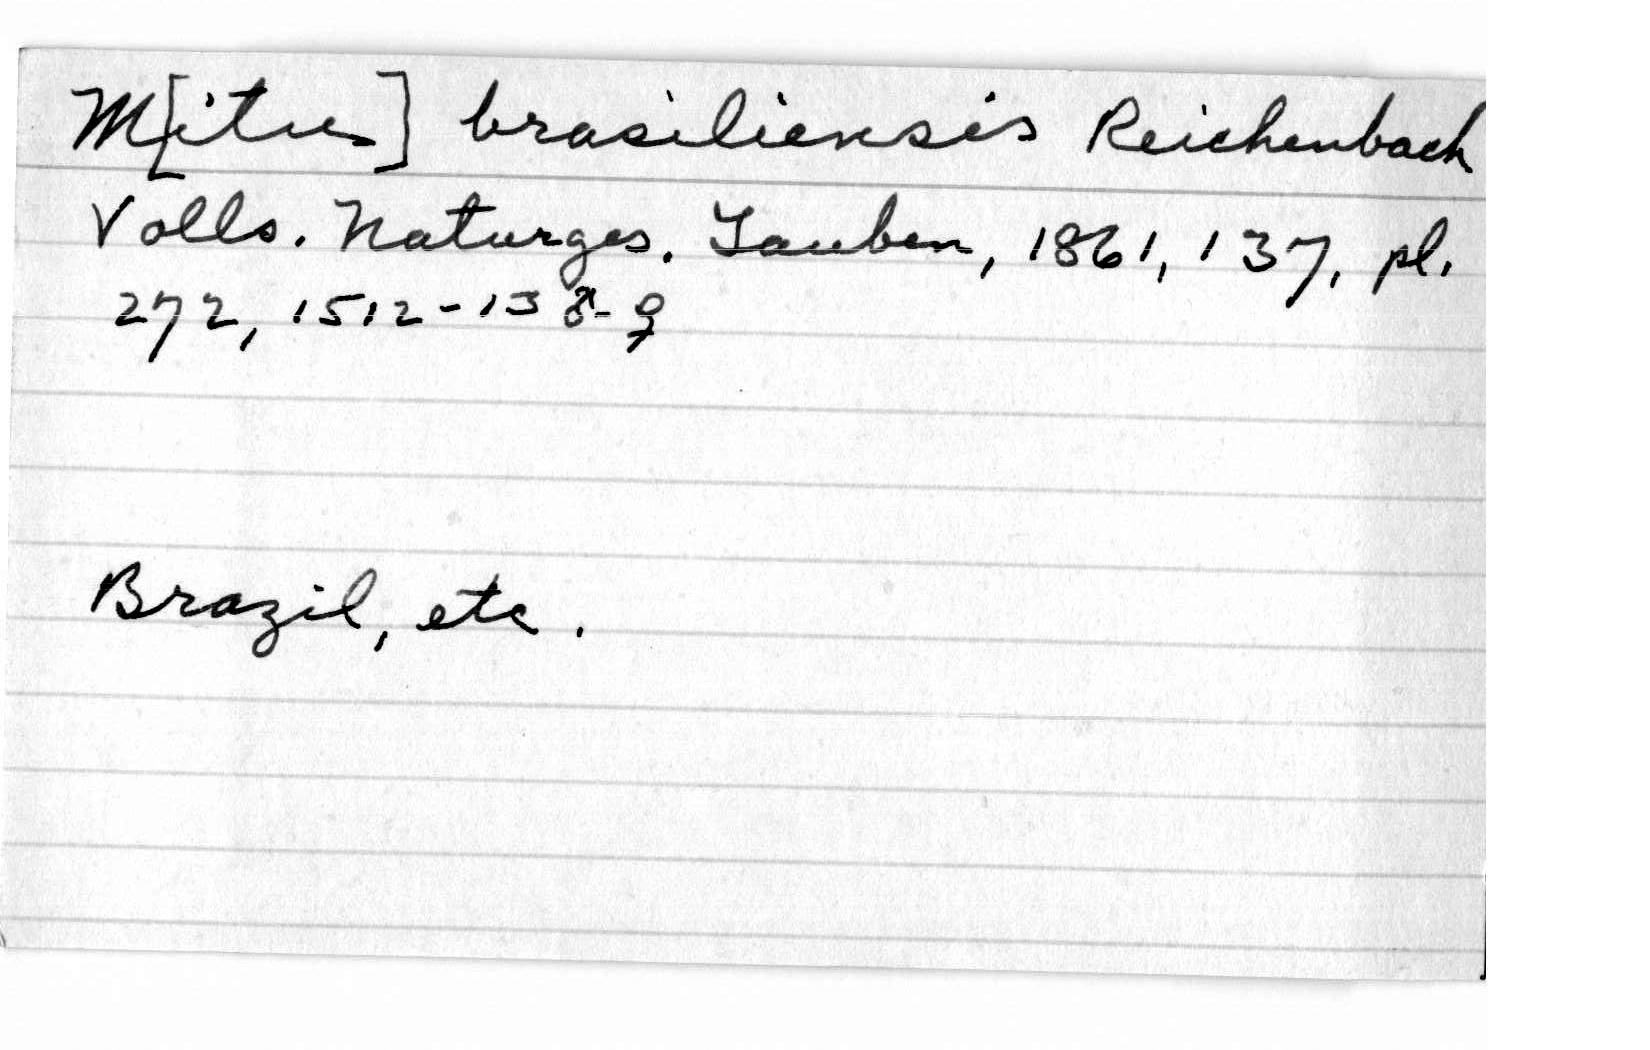 M[itu] brasiliensis Reichenbach
Volls. Naturges. Tauben, 1861, 137, pl.
272, 1512-13 ♂-♀
Brazil, etc.